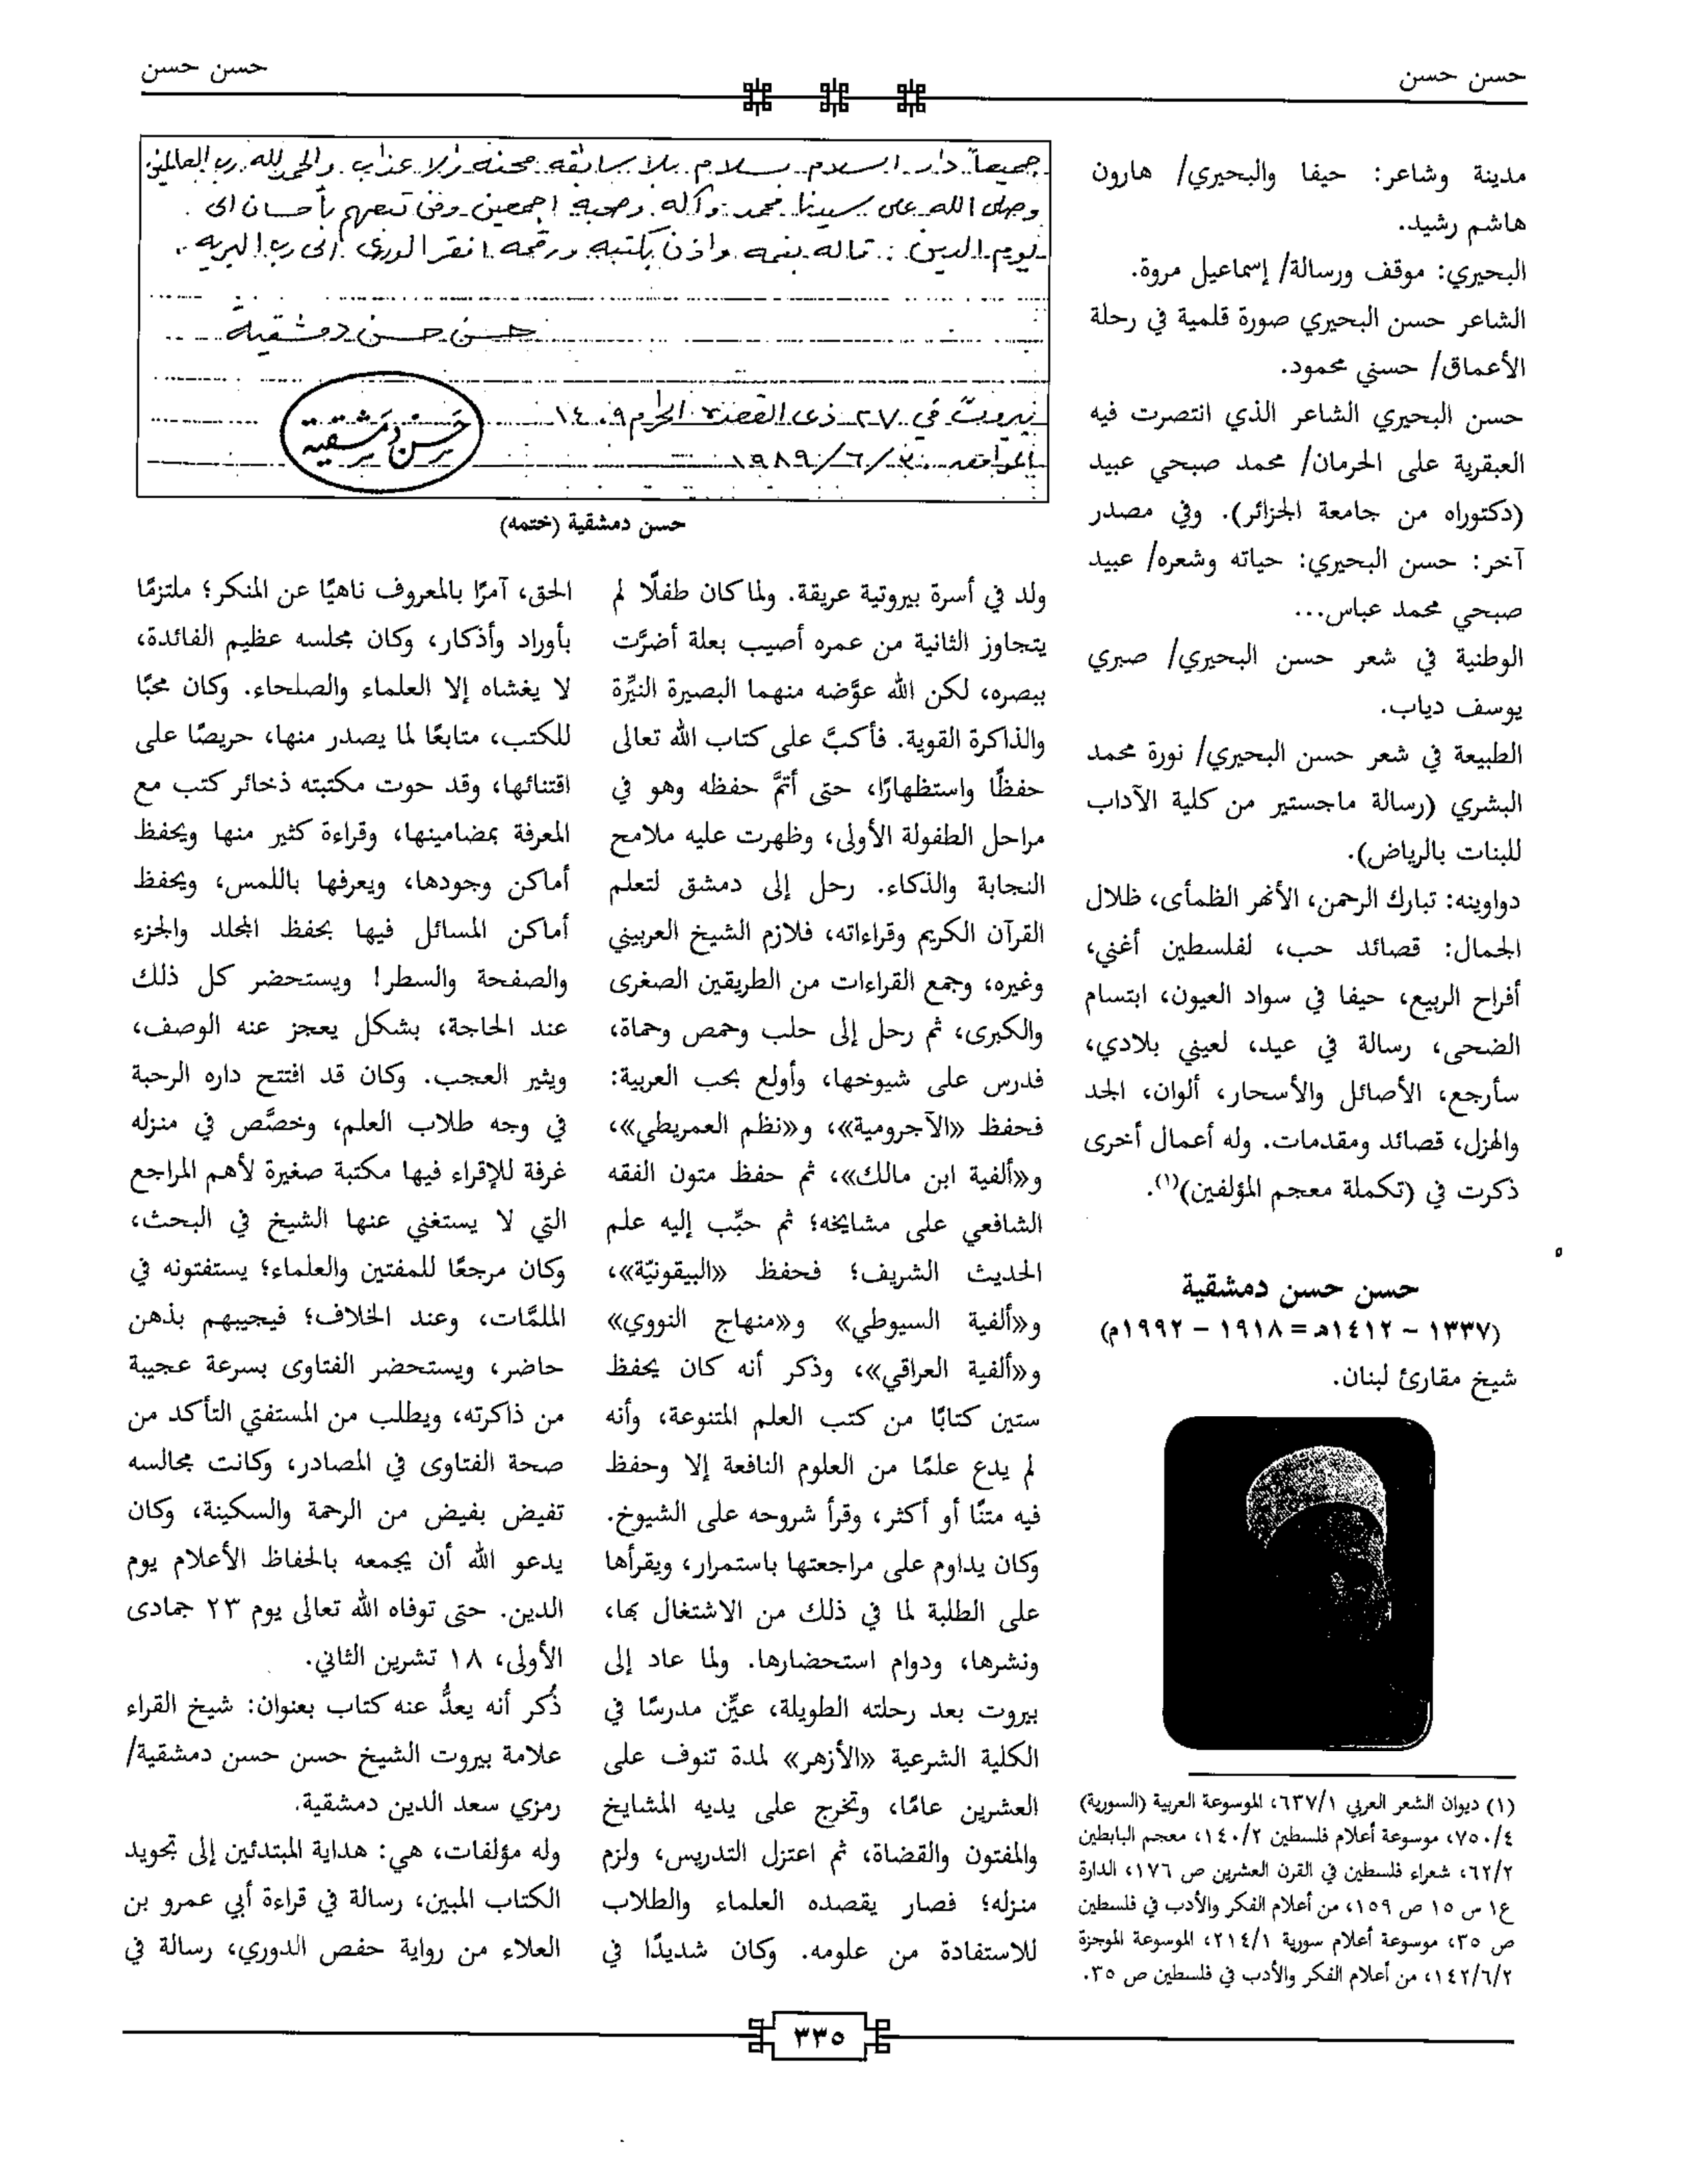 حسن حسن
حسن حسن
مدينة وشاعر: حيفا والبحيري/ هارون
هاشم رشيد.
البحيري: موقف ورسالة/ إسماعيل مروة.
الشاعر حسن البحيري صورة قلمية في رحلة
الأعماق/ حسني محمود.
حسن البحيري الشاعر الذي انتصرت فيه
العبقرية على الحرمان/ محمد صبحي عبيد
(دكتوراه من جامعة الجزائر). وفي مصدر
آخر: حسن البحيري: حياته وشعره/ عبيد
صبحي محمد عباس...
الوطنية في شعر حسن البحيري/ صبري
يوسف دياب.
الطبيعة في شعر حسن البحيري/ نورة محمد
البشري (رسالة ماجستير من كلية الآداب
للبنات بالرياض).
دواوينه: تبارك الرحمن، الأنهر الظمأى، ظلال
الجمال: قصائد حب، لفلسطين أغني،
أفراح الربيع، حيفا في سواد العيون، ابتسام
الضحى، رسالة في عيد، لعيني بلادي،
سأرجع، الأصائل والأسحار، ألوان، الجد
والهزل، قصائد ومقدمات. وله أعمال أخرى
ذكرت في (تكملة معجم المؤلفين)(١).
حسن حسن دمشقية
(١٣٣٧ - ١٤١٢هـ = ١٩١٨ - ١٩٩٢م)
شيخ مقارئ لبنان.
(١) ديوان الشعر العربي ٦٣٧/١، الموسوعة العربية (السورية)
٧٥٠/٤، موسوعة أعلام فلسطين ١٤٠/٢، معجم البابطين
٦٢/٢، شعراء فلسطين في القرن العشرين ص ١٧٦، الدارة
ع١ س ١٥ ص ١٥٩، من أعلام الفكر والأدب في فلسطين
ص ٣٥، موسوعة أعلام سورية ٢١٤/١، الموسوعة الموجزة
١٤٢/٦/٢، من أعلام الفكر والأدب في فلسطين ص ٣٥.
جميعاً دار السلام بسلام بلا سابقة محنة ولا عذاب والحمد لله رب العالمين
وصلى الله على سيدنا محمد وآله وصحبه اجمعين ومن تبعهم بأحسان الى
يوم الدين : قاله بفمه واذن بكتبه ورقمه افقر الورى الى رب البريه
حسن حسن دمشقية
بيروت في ٢٧ ذي القعدة الحرام ١٤٠٩
الموافق ٣٠/٦/١٩٨٩
حسن دمشقية
حسن دمشقية (ختمه)
ولد في أسرة بيروتية عريقة. ولما كان طفلًا لم
يتجاوز الثانية من عمره أصيب بعلة أضرَّت
ببصره، لكن الله عوَّضه منهما البصيرة النيِّرة
والذاكرة القوية. فأكبَّ على كتاب الله تعالى
حفظًا واستظهارًا، حتى أتمَّ حفظه وهو في
مراحل الطفولة الأولى، وظهرت عليه ملامح
النجابة والذكاء. رحل إلى دمشق لتعلم
القرآن الكريم وقراءاته، فلازم الشيخ العربيني
وغيره، وجمع القراءات من الطريقين الصغرى
والكبرى، ثم رحل إلى حلب وحمص وحماة،
فدرس على شيوخها، وأولع بحب العربية:
فحفظ «الآجرومية»، و«نظم العمريطي»،
و«ألفية ابن مالك»، ثم حفظ متون الفقه
الشافعي على مشايخه؛ ثم حبِّب إليه علم
الحديث الشريف؛ فحفظ «البيقونيّة»،
و«ألفية السيوطي» و«منهاج النووي»
و«ألفية العراقي»، وذكر أنه كان يحفظ
ستين كتابًا من كتب العلم المتنوعة، وأنه
لم يدع علمًا من العلوم النافعة إلا وحفظ
فيه متنًا أو أكثر، وقرأ شروحه على الشيوخ.
وكان يداوم على مراجعتها باستمرار، ويقرأها
على الطلبة لما في ذلك من الاشتغال بها،
ونشرها، ودوام استحضارها. ولما عاد إلى
بيروت بعد رحلته الطويلة، عيِّن مدرسًا في
الكلية الشرعية «الأزهر» لمدة تنوف على
العشرين عامًا، وتخرج على يديه المشايخ
والمفتون والقضاة، ثم اعتزل التدريس، ولزم
منزله؛ فصار يقصده العلماء والطلاب
للاستفادة من علومه. وكان شديدًا في
الحق، آمرًا بالمعروف ناهيًا عن المنكر؛ ملتزمًا
بأوراد وأذكار، وكان مجلسه عظيم الفائدة،
لا يغشاه إلا العلماء والصلحاء. وكان محبًا
للكتب، متابعًا لما يصدر منها، حريصًا على
اقتنائها، وقد حوت مكتبته ذخائر كتب مع
المعرفة بمضامينها، وقراءة كثير منها ويحفظ
أماكن وجودها، ويعرفها باللمس، ويحفظ
أماكن المسائل فيها بحفظ المجلد والجزء
والصفحة والسطر! ويستحضر كل ذلك
عند الحاجة، بشكل يعجز عنه الوصف،
ويثير العجب. وكان قد افتتح داره الرحبة
في وجه طلاب العلم، وخصَّص في منزله
غرفة للإقراء فيها مكتبة صغيرة لأهم المراجع
التي لا يستغني عنها الشيخ في البحث،
وكان مرجعًا للمفتين والعلماء؛ يستفتونه في
الملمَّات، وعند الخلاف؛ فيجيبهم بذهن
حاضر، ويستحضر الفتاوى بسرعة عجيبة
من ذاكرته، ويطلب من المستفتي التأكد من
صحة الفتاوى في المصادر، وكانت مجالسه
تفيض بفيض من الرحمة والسكينة، وكان
يدعو الله أن يجمعه بالحفاظ الأعلام يوم
الدين. حتى توفاه الله تعالى يوم ٢٣ جمادى
الأولى، ١٨ تشرين الثاني.
ذُكر أنه يعدُّ عنه كتاب بعنوان: شيخ القراء
علامة بيروت الشيخ حسن حسن دمشقية/
رمزي سعد الدين دمشقية.
وله مؤلفات، هي: هداية المبتدئين إلى تجويد
الكتاب المبين، رسالة في قراءة أبي عمرو بن
العلاء من رواية حفص الدوري، رسالة في
٣٣٥